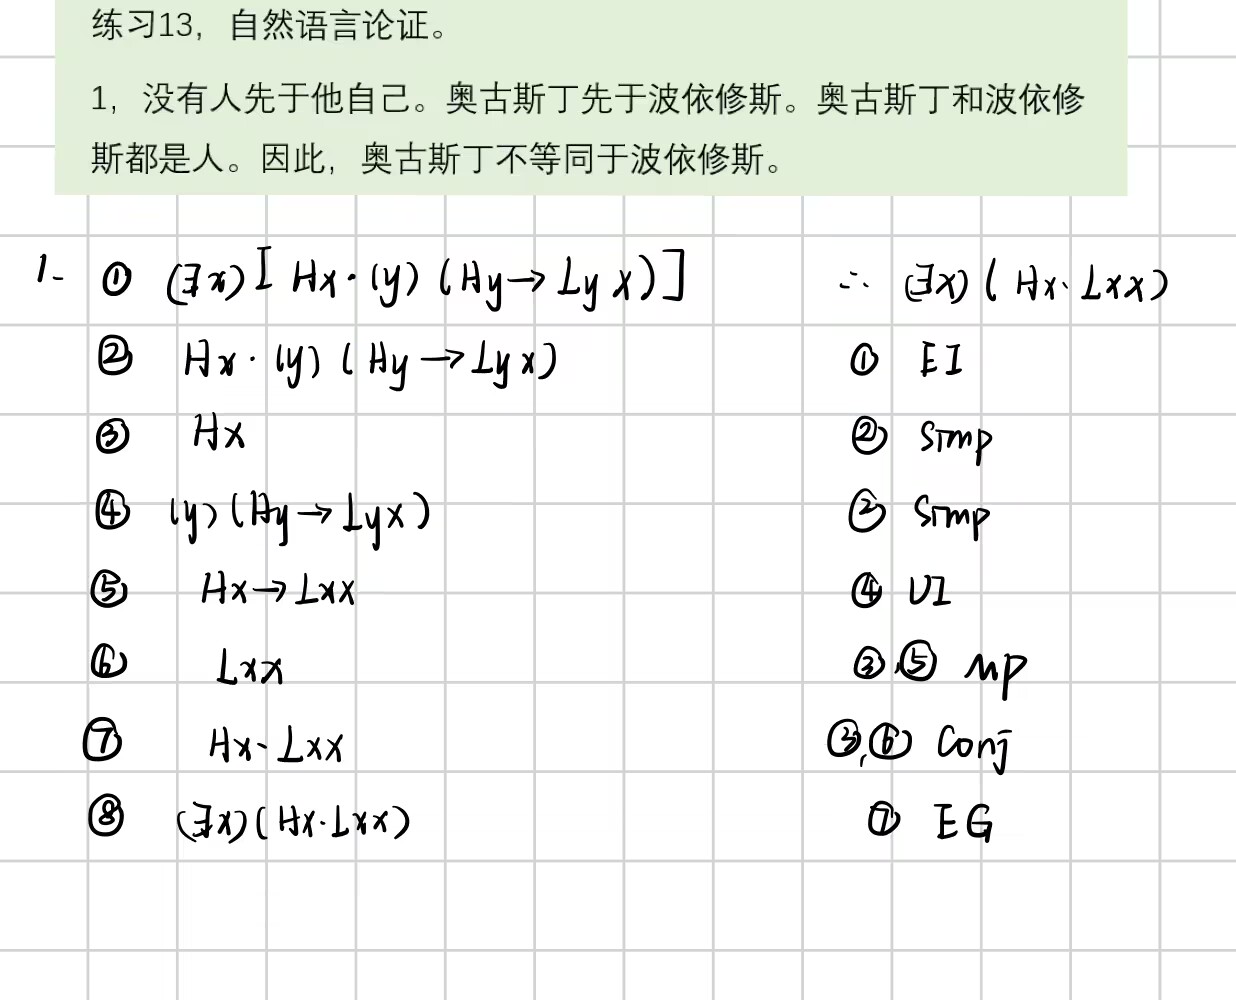 练习13，自然语言论证。
1，没有人先于他自己。奥古斯丁先于波依修斯。奥古斯丁和波依修
斯都是人。因此，奥古斯丁不等同于波依修斯。
1. ① (∃x)[Hx·(y)(Hy→Lyx)] ∴ (∃x)(Hx·Lxx)
② Hx·(y)(Hy→Lyx) ① EI
③ Hx ② Simp
④ (y)(Hy→Lyx) ② Simp
⑤ Hx→Lxx ④ UI
⑥ Lxx ③,⑤ MP
⑦ Hx·Lxx ③,⑥ Conj
⑧ (∃x)(Hx·Lxx) ⑦ EG